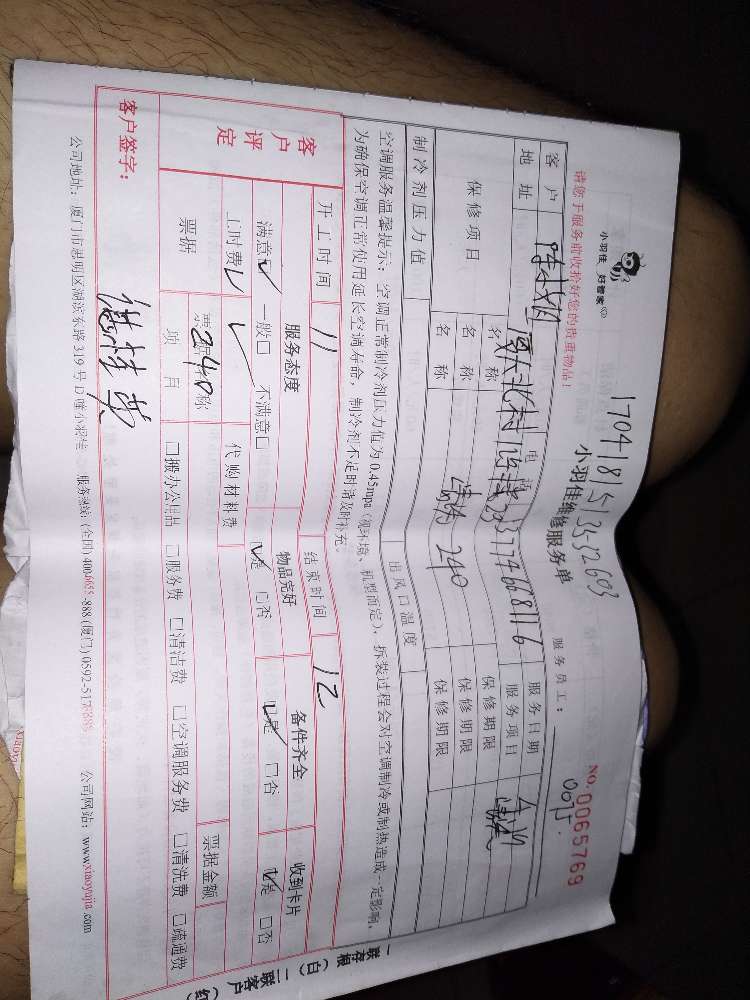 小羽佳 好管家
170418151352603
小羽佳维修服务单
NO.0065769
请您于服务前收拾好您的贵重物品!
服务员工:
客户
电话
服务日期
地址
服务项目
保修项目
名称
保修期限
名称
清洗 240
保修期限
名称
保修期限
制冷剂压力值
出风口温度
空调服务温馨提示:空调正常制冷剂压力值为0.45mpa(视环境、机型而定),拆装过程会对空调制冷或制热造成一定影响,
为确保空调正常使用延长空调寿命,制冷剂不足时请及时补充。
客户评定
开工时间 11 结束时间 12
服务态度 物品完好 备件齐全 收到卡片
满意☑ 一般□ 不满意□ ☑是 □否 ☑是 □否 ☑是 □否
工时费 代购材料费
票据 240 票据金额
项目 □搬办公用品 □服务费 □清洁费 □空调服务费 □清洗费 □疏通费
客户签字:
公司地址:厦门市思明区湖滨东路319号D幢小羽佳 服务热线:(全国)400-6655-888 (厦门)0592-517 公司网站:www.xiaoyujia.com
一联存根(白) 二联客户(红)